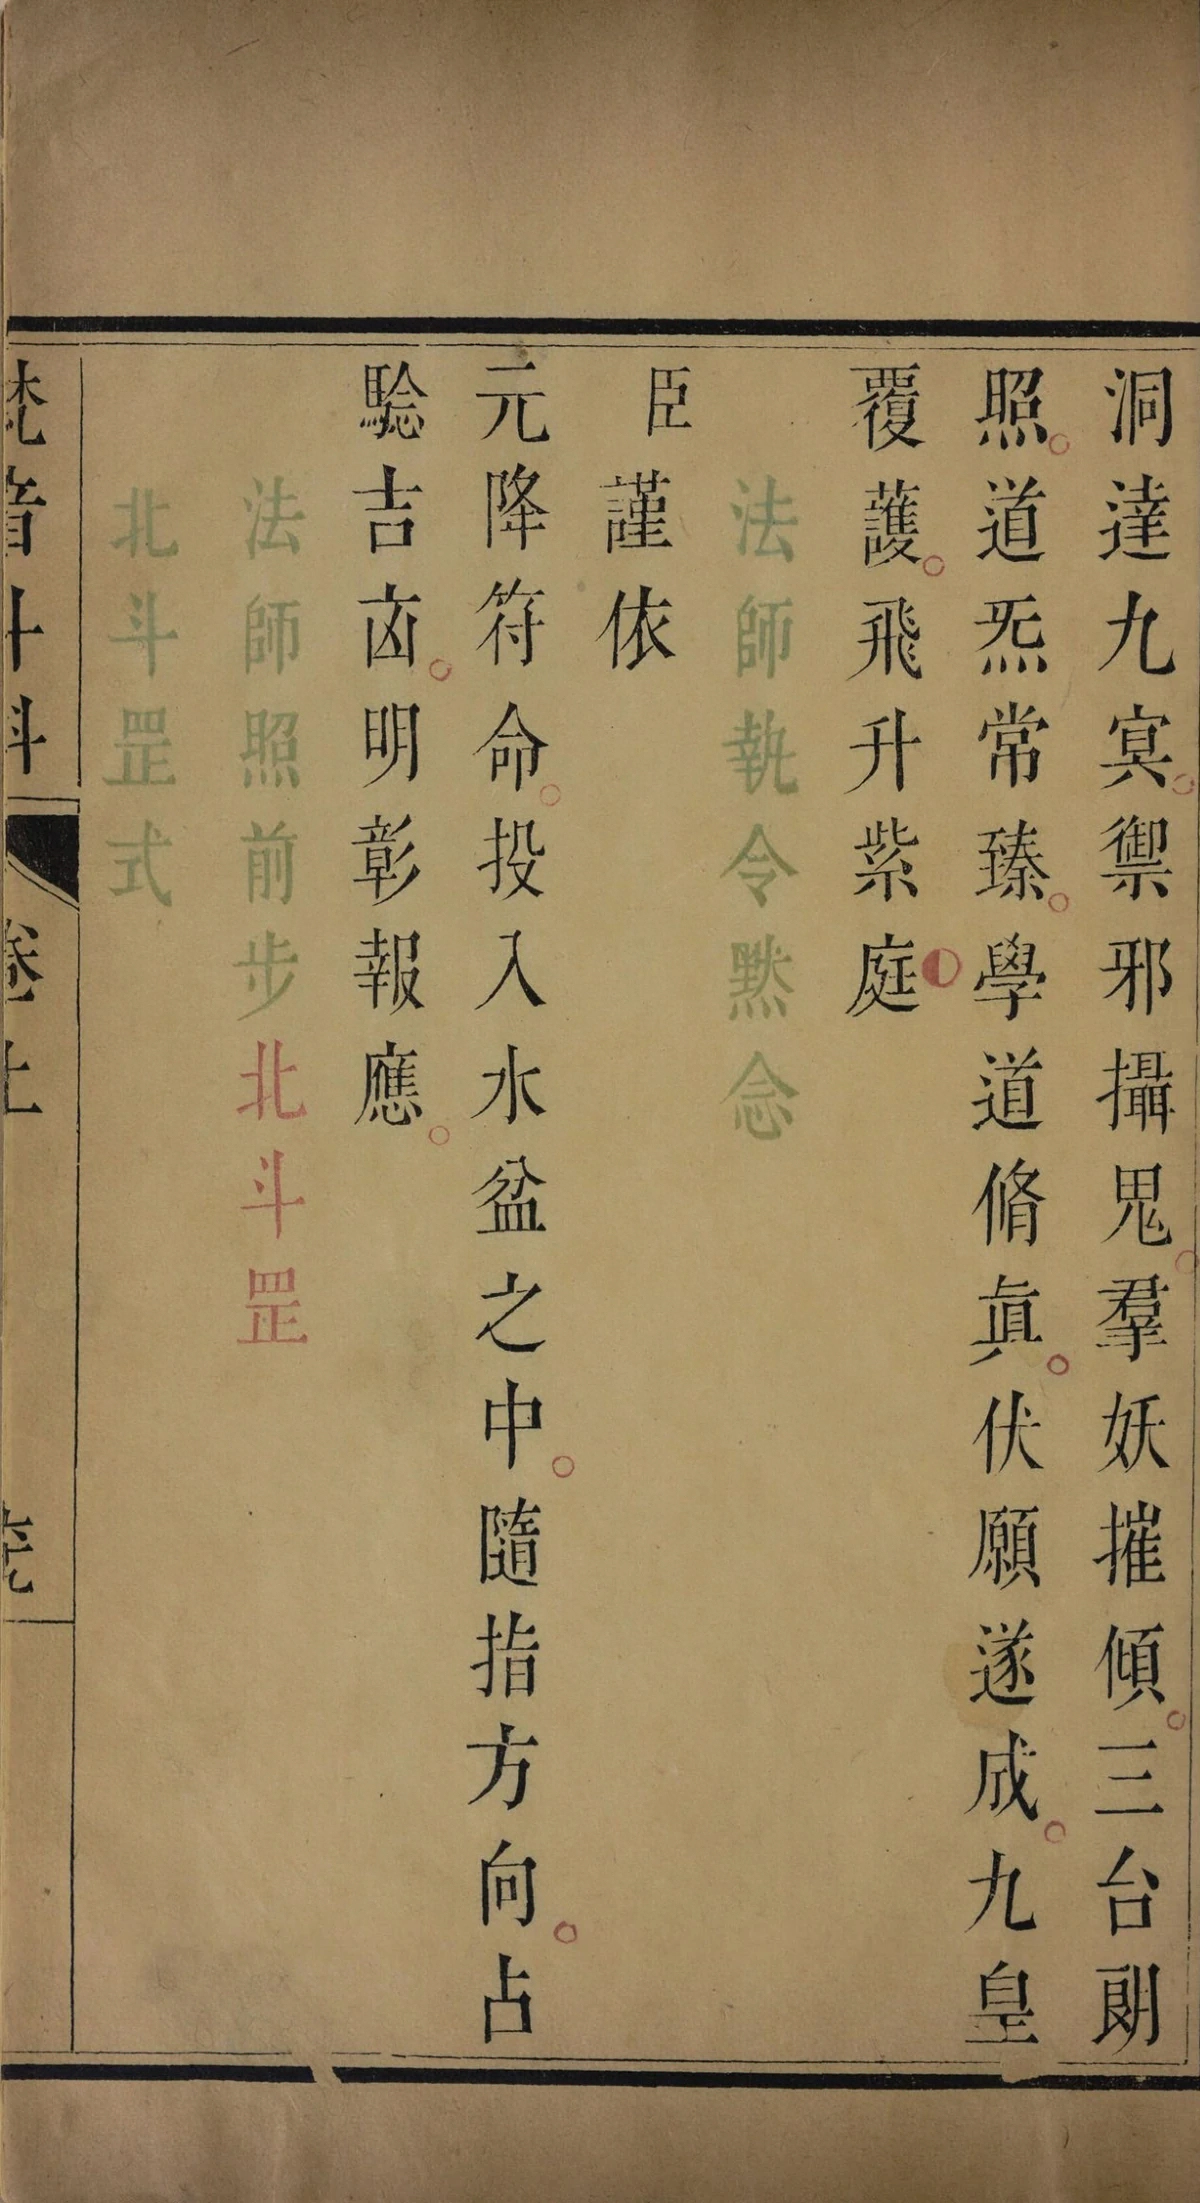 洞達九㝠。禦邪攝鬼。羣妖摧傾。三台朗
照。道炁常臻。學道脩眞。伏願遂成。九皇
覆護。飛升紫庭◐
法師執令黙念
臣謹依
元降符命。投入水盆之中。隨指方向。占
騐吉凶。明彰報應。
法師照前步北斗罡
北斗罡式
梵音斗科
卷上